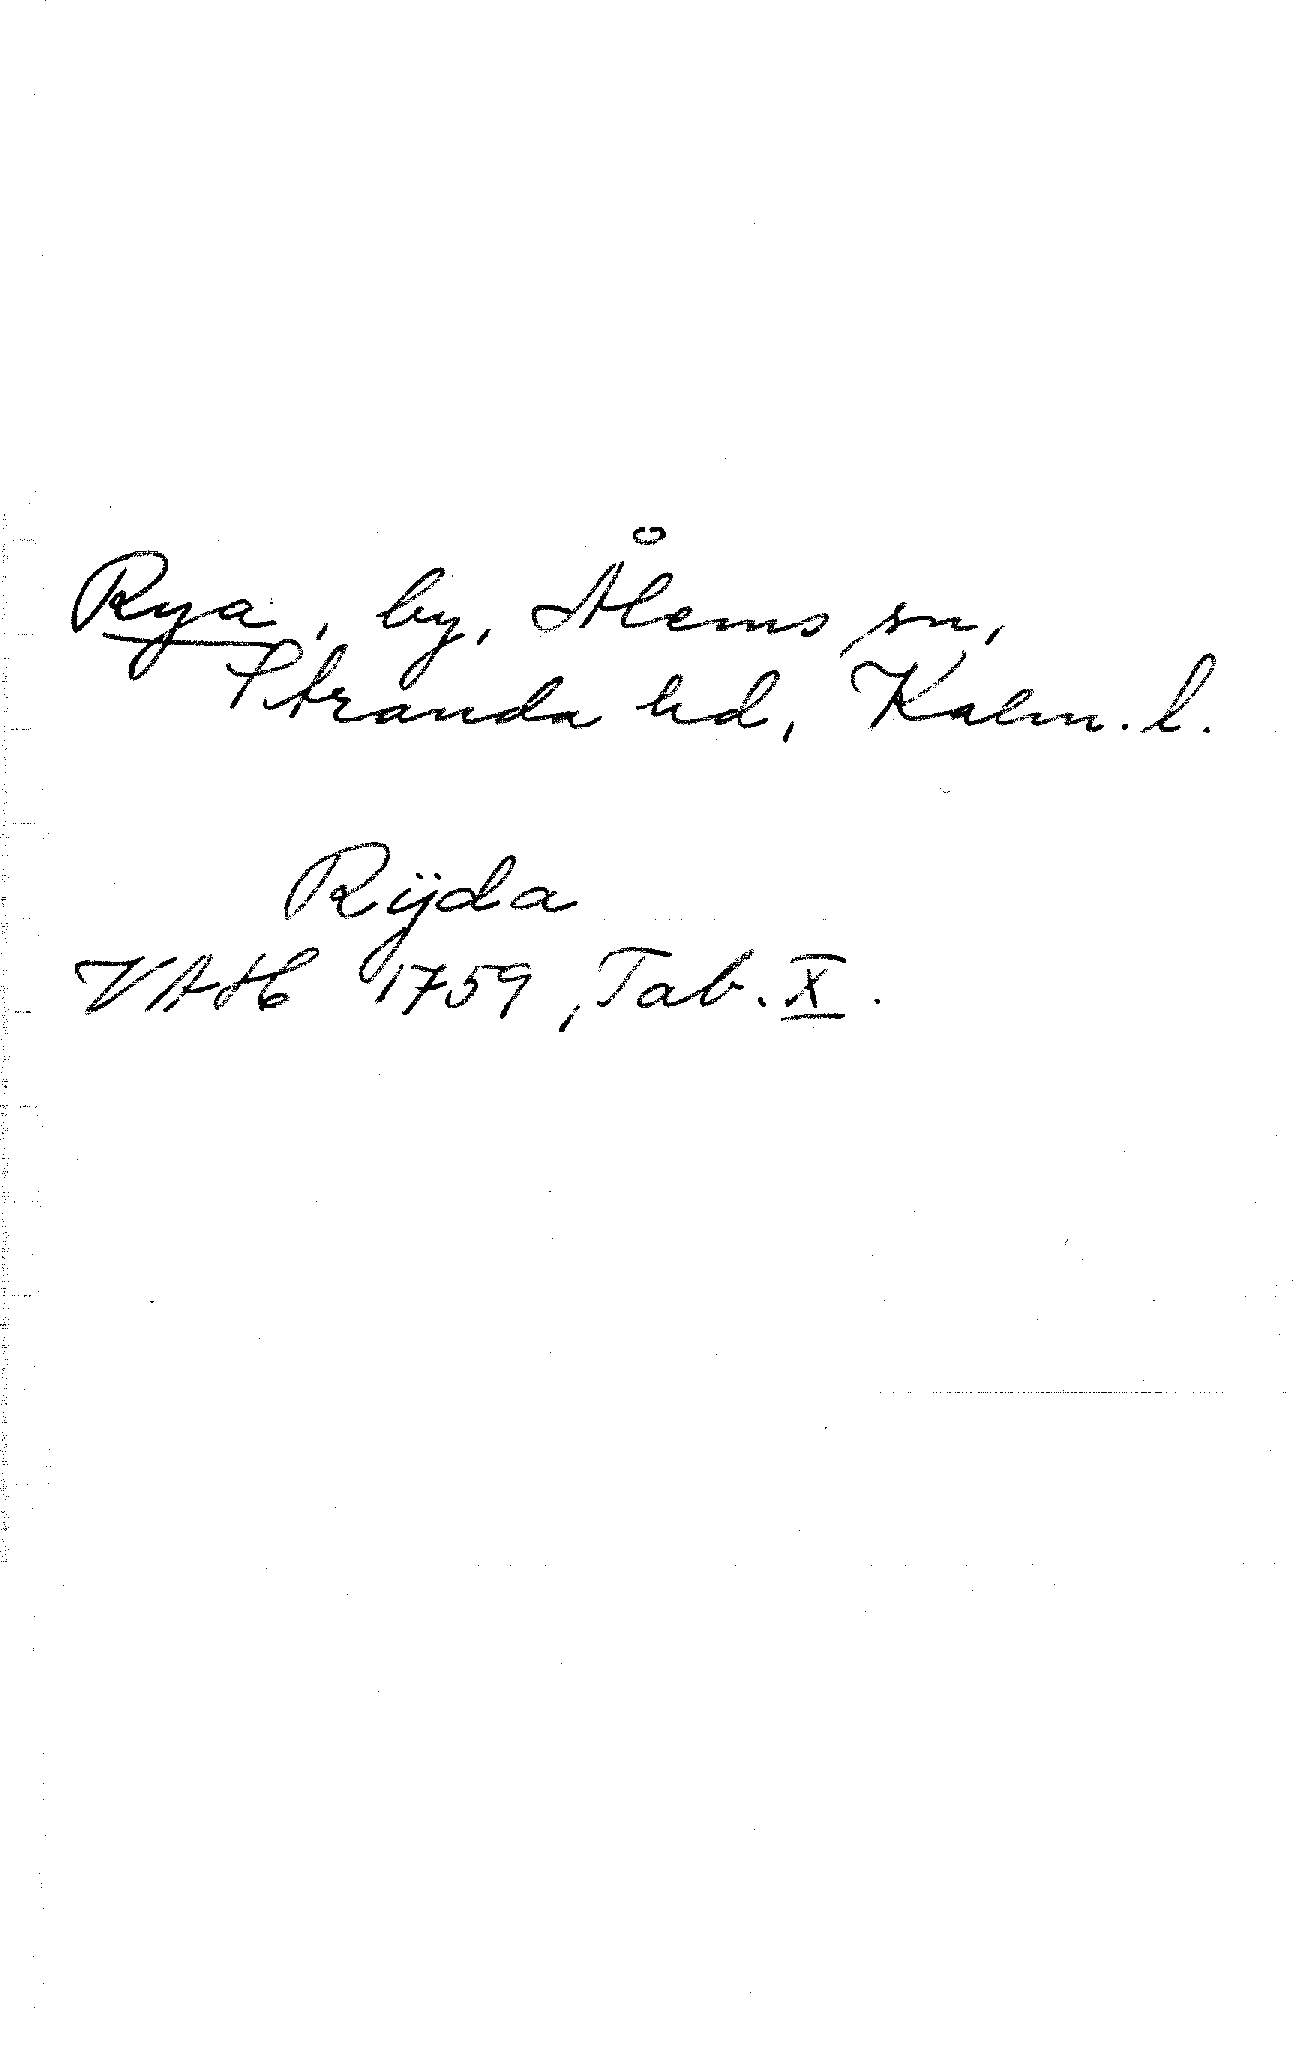 Rya, by, Ålems sn,
Stranda hd, Kalm. l.
Rÿda
VAH 1759, Tab. X.